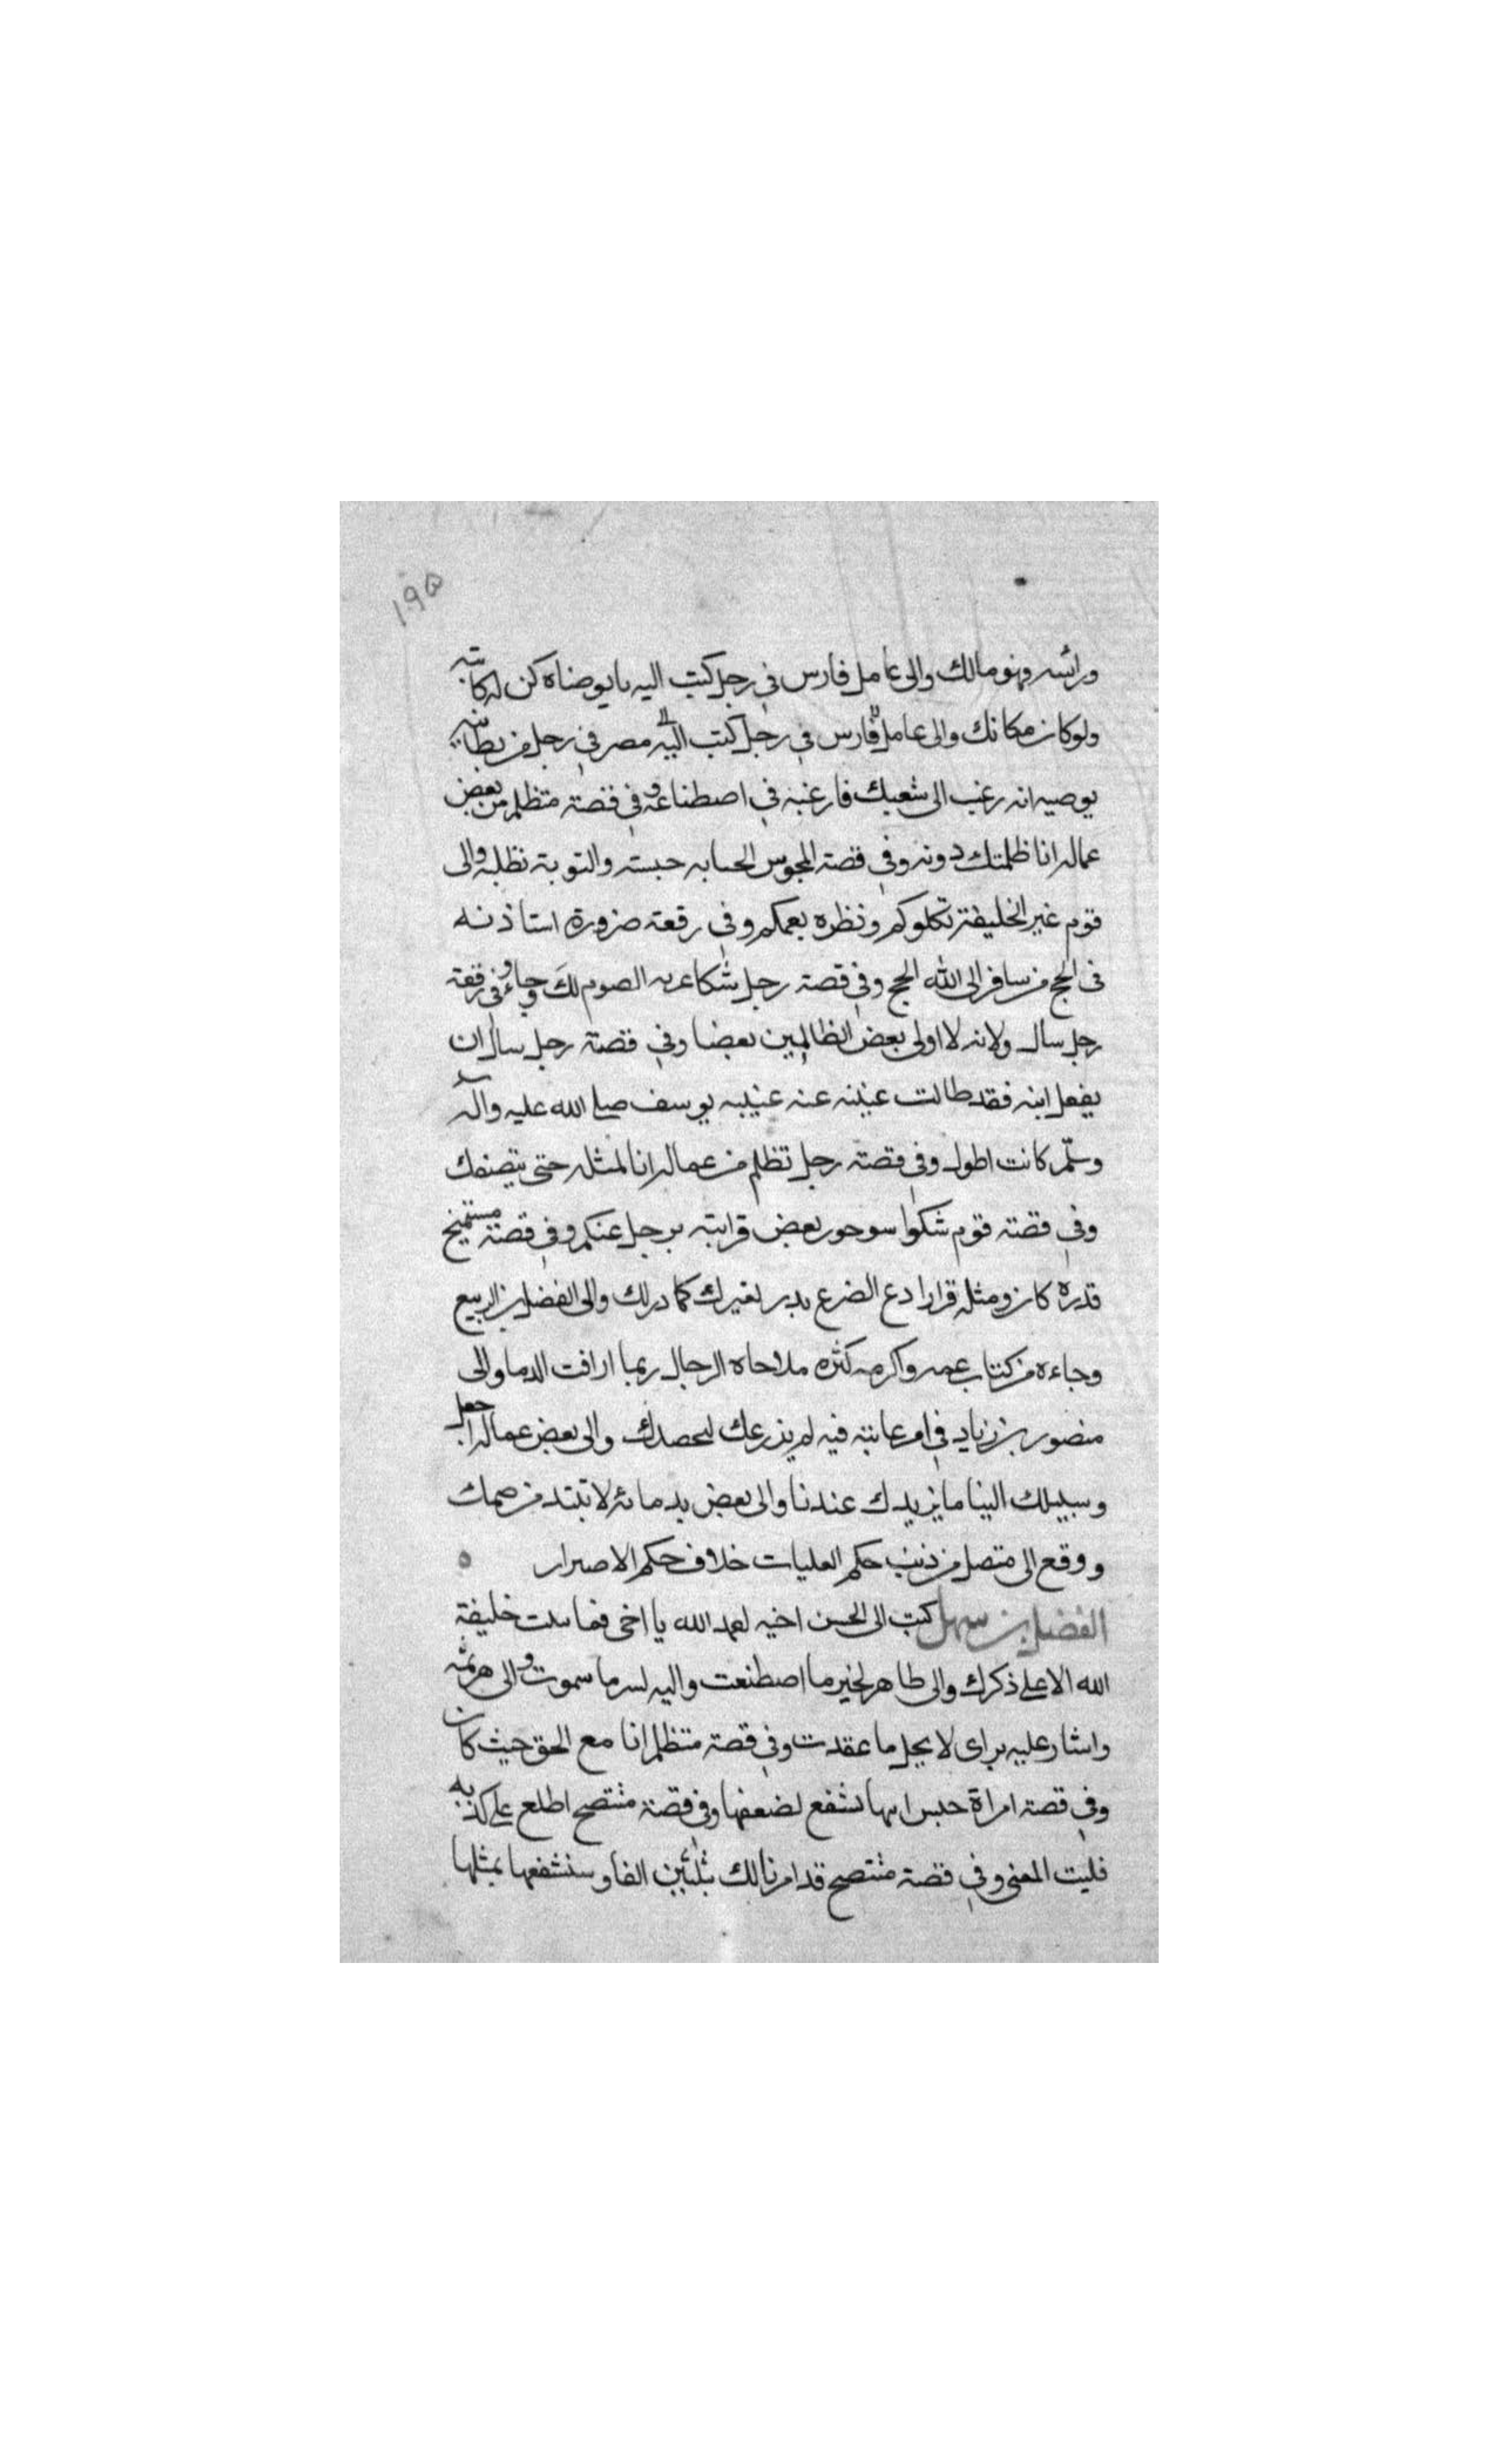 ١٩٥
فهو مالك والى عامل فارس في رجل كتب اليه بايوصناه كن له كاتبه
ولو كان مكانك والى عامل فارس في رجل كتب اليه الى مصر في رجل من بطانته
يوصيه انه رغب الى شعبك فارغبه في اصطناعه وفي قصة متظلم من بعض
عماله انا ظلمتك دونه وفي قصة المجوس الحسابه حبسته والتوبة تظله والى
قوم غير الخليفة تكلوكم ونظره يعمكم وفي رقعة ضرورة استاذنه
في الحج من سافر الى الله الحج وفي قصة رجل شكا عزبه الصوم لك وجاء وفي رقعة
رجل سال ولانه لا اولى بعض الظالمين بعضا وفي قصة رجل سال ان
يفعل ابنه فقد طالت غيبته عنه غيبه يوسف صلى الله عليه وآله
وسلم كانت اطول وفي قصة رجل تظلم من عماله انا لمثله حتى ينصفك
وفي قصة قوم شكوا بعض قرابته يرحل عنكم وفي قصة مستميح
قدره كان ومثله قرارا دع الضرع يدر لغيرك كما در لك والى الفضل بن الربيع
وجاءه من كتاب عمه واكرمه كثره ملاحاه الرجال ربما اراقت الدما والى
منصور بن زياد في امر عاتبه فيه لم يزرعك ليحصدك والى بعض عماله اجعل
وسيلتك الينا ما يزيدك عندنا والى بعض ندمائه لا تبتد من حمك
ووقع الى متصل من ذنب حكم العليات خلاف حكم الاصرار
الفضل بن سهل كتب الى الحسن اخيه لعمد الله يا اخى فما خليفة
الله الا على ذكرك والى طاهر لخير ما اصطنعت واليه لسر ما سموت والى هرثمه
واشار عليه براى لا يحل ما عقدت وفي قصة متظلم انا مع الحق حيث كان
وفي قصة امراة حبس ابنها تشفع لضعفها وفي قصة منتصح اطلع على كذبه
فليت المعنى وفي قصة منتصح قد امرنا لك بثلثين الفا وسنشفعها بمثلها